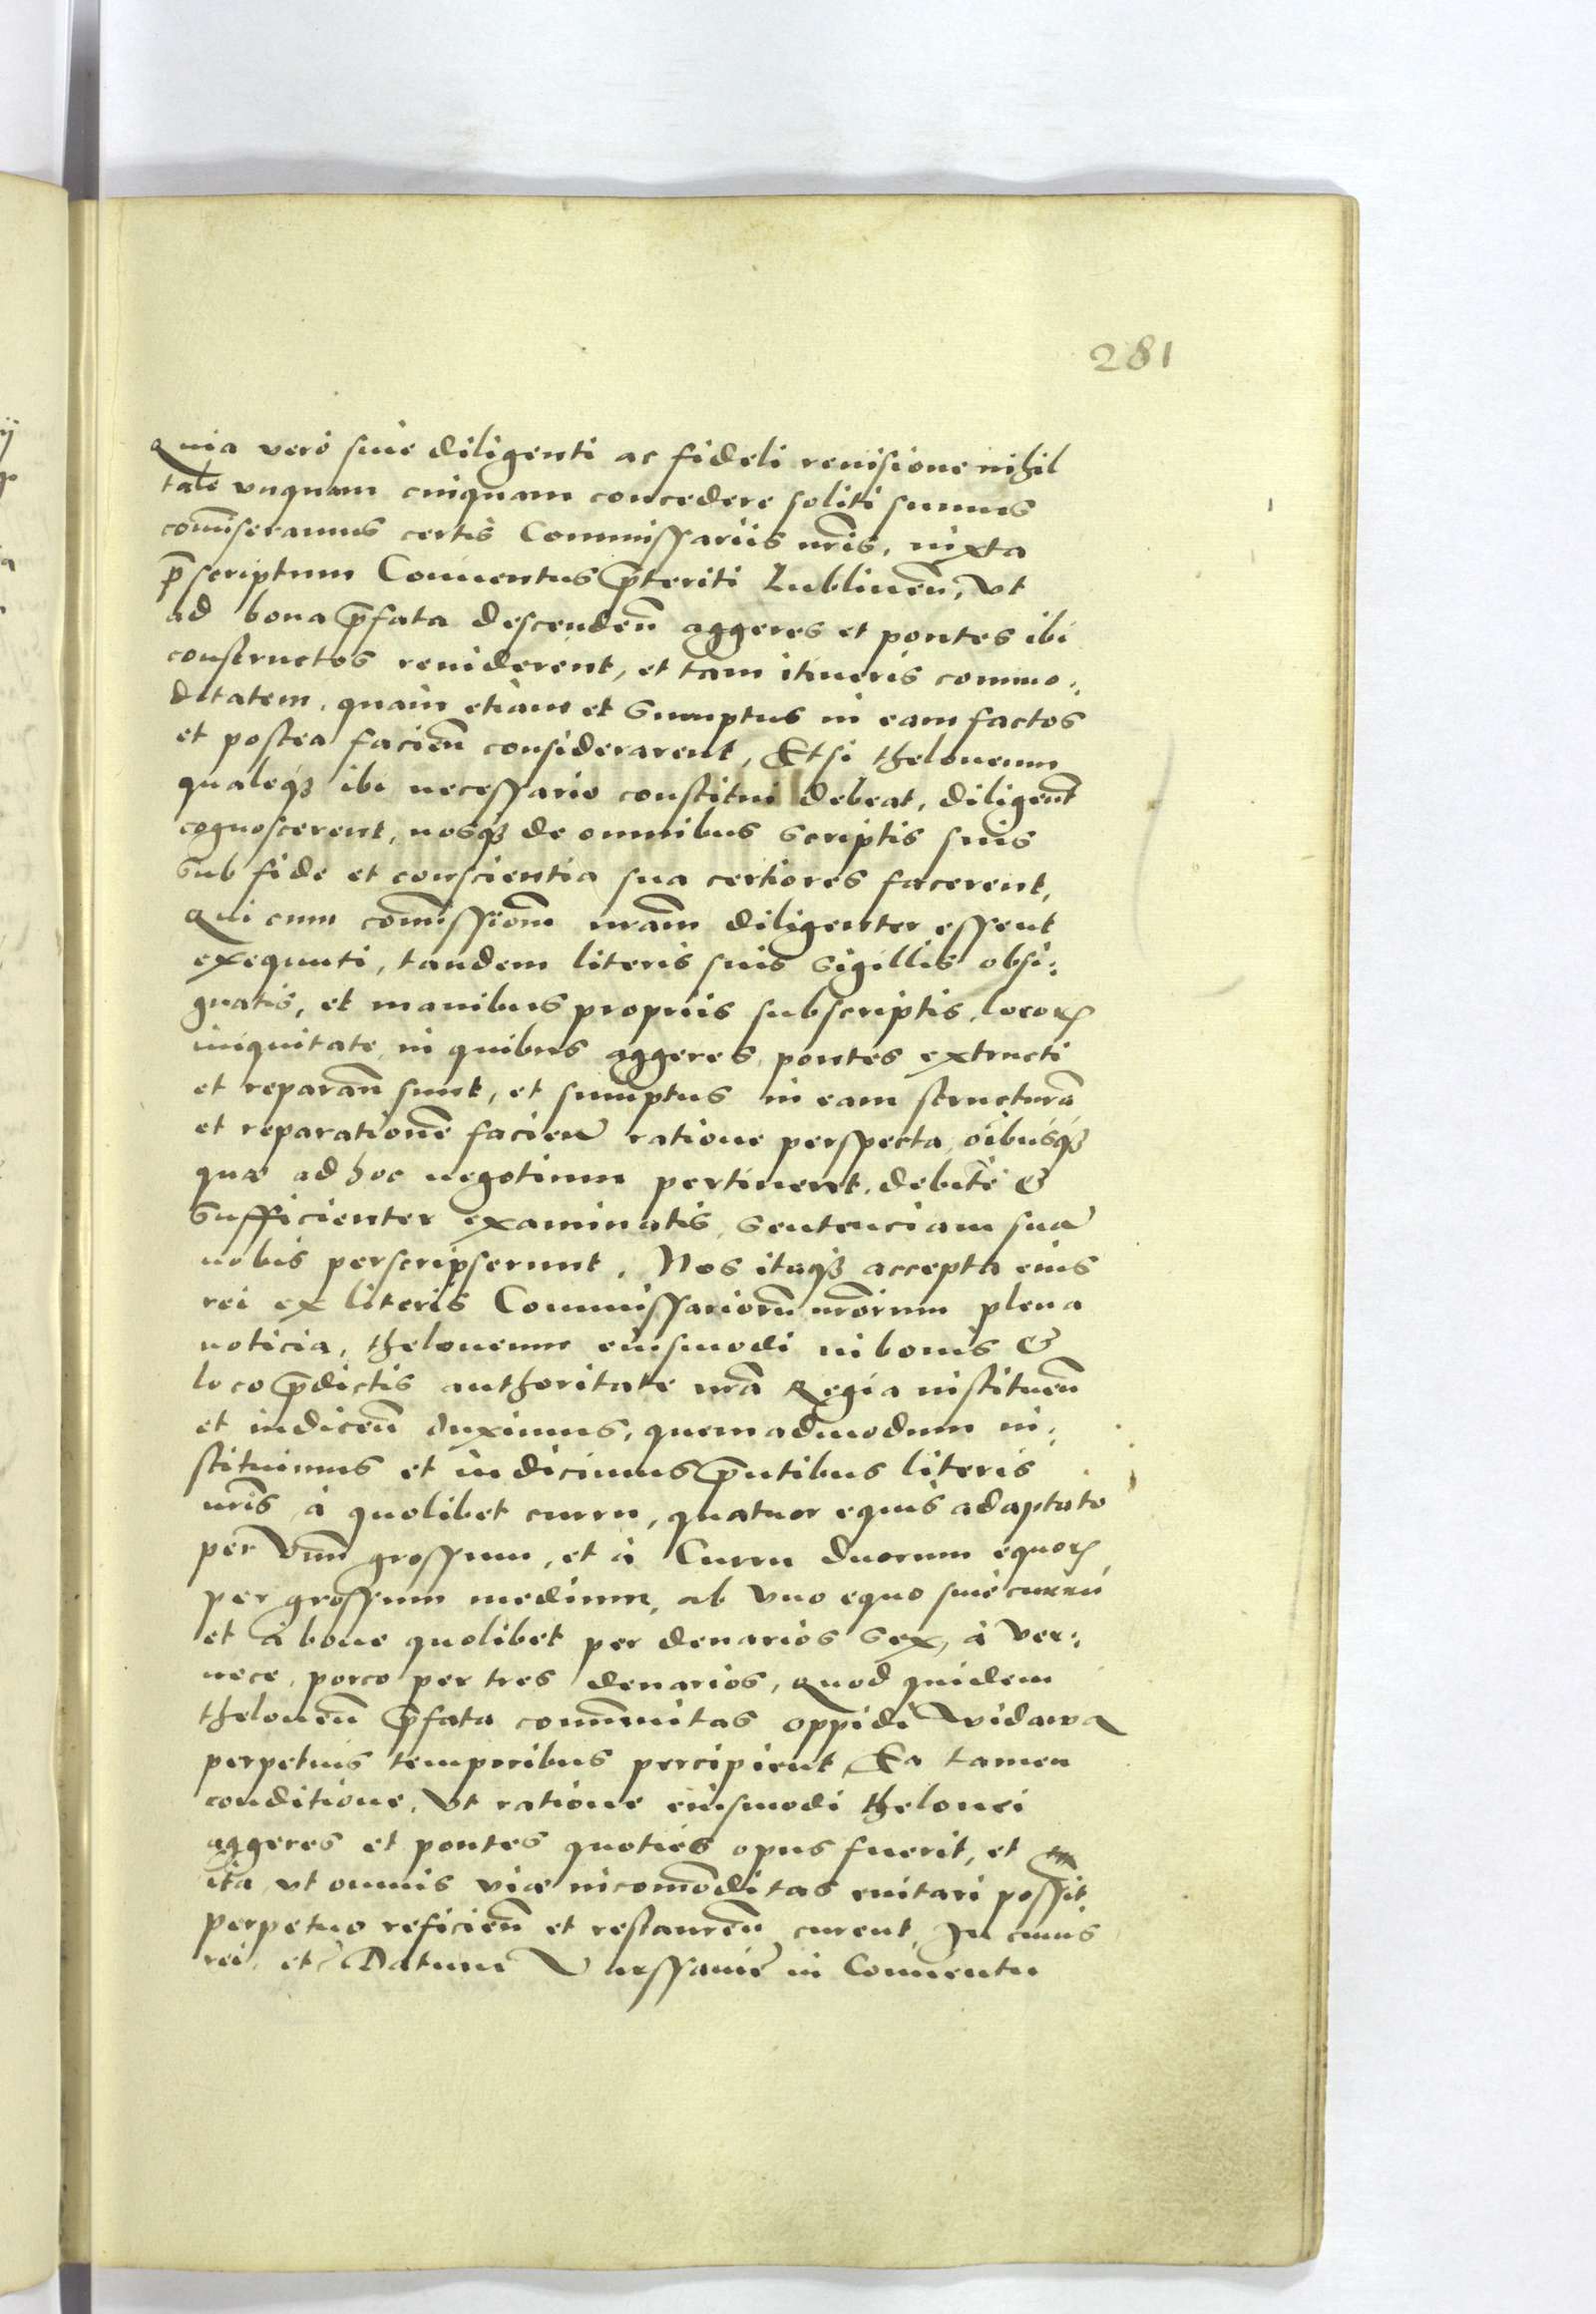 281
Quia vero sine diligenti ac fideli reuisione nihil
tale vnquam cuiquam concedere soliti sumus
com̄iseramus certis Commissariis nr̄is, iuxta
p̄scriptum Conuentus p̄teriti Lublineñ, Vt
ad bona p̄fata descendeñ aggeres et pontes ibi
constructos reuiderent, et tam itineris commo:
ditatem, quam etiam et Sumptus in eam factos
et postea facieñ considerarent, Et si theloneum
qualeqʒ ibi necessario constitui debeat, diligent̄
cognoscerent, nosqʒ de omnibus Scriptis suis
Sub fide et conscientia sua certiores facerent,
Qui cum com̄issiom̄ nr̄am diligenter essent
exequuti, tandem literis suis Sigillis obsi:
gnatis, et manibus propriis subscriptis, locoꝝ
iniquitate, in quibus aggeres, pontes extructi
et reparañ sunt, et sumptus in eam structurā
et reparationē facieñ ratione perspecta, oībusqʒ
quæ ad hoc negotium pertinent, debite &
Sufficienter examinatis, Sentenciam suā
nobis perscripserunt, Nos itaqʒ accepta eius
rei ex literis Commissariorū nr̄orum plena
noticia, theloneum eiusmodi in bonis &
loco p̄dictis authoritate nr̄a Regia instituēn
et indiceñ duximus, quemadmodum in:
stituimus et indicimus p̄ntibus literis
nr̄is à quolibet curru, quatuor equis adaptato
per Vnū grossum, et à Curru duorum equoꝝ
per grossum medium, ab vno equo sine curru
et à boue quolibet per denarios Sex, à Ver:
uece, porco per tres denarios, Quod quidem
theloneū p̄fata com̄unitas oppidi Widawa
perpetuis temporibus percipient, Ea tamen
conditione, Vt ratione eiusmodi thelonei
aggeres et pontes quoties opus fuerit, et
ita, vt omnis viæ incom̄oditas euitari possit
perpetuo reficieñ et restaureñ curent, In cuius
rei, etc̄ Datum Varssauiē in Conuentu